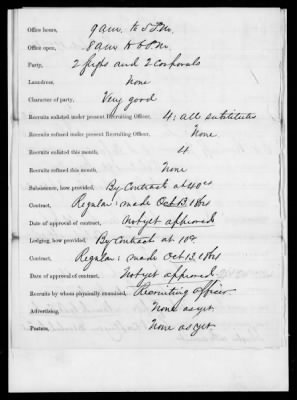 Office hours, 9 a.m. to 5 P.M.
Office open, 8 a.m. to 6 P.M.
Party, 2 and 2 corporals
Laundress, None
Character of party, Very good
Recruits enlisted under present Recruiting Officer, 4: all
Recruits refused under present Recruiting Officer, None
Recruits enlisted this month, 4
Recruits refused this month, None
Subsistence, how provided, By Contract at 40cs
Contract, Regular: made Oct 13
Date of approval of contract, Not yet approved
Lodging, how provided, By Contract at 10c
Contract, Regular: made Oct 13
Date of approval of contract, Not yet approved
Recruits by whom physically examined, Recruiting Officer
Advertising, None as yet
Posters, None as yet